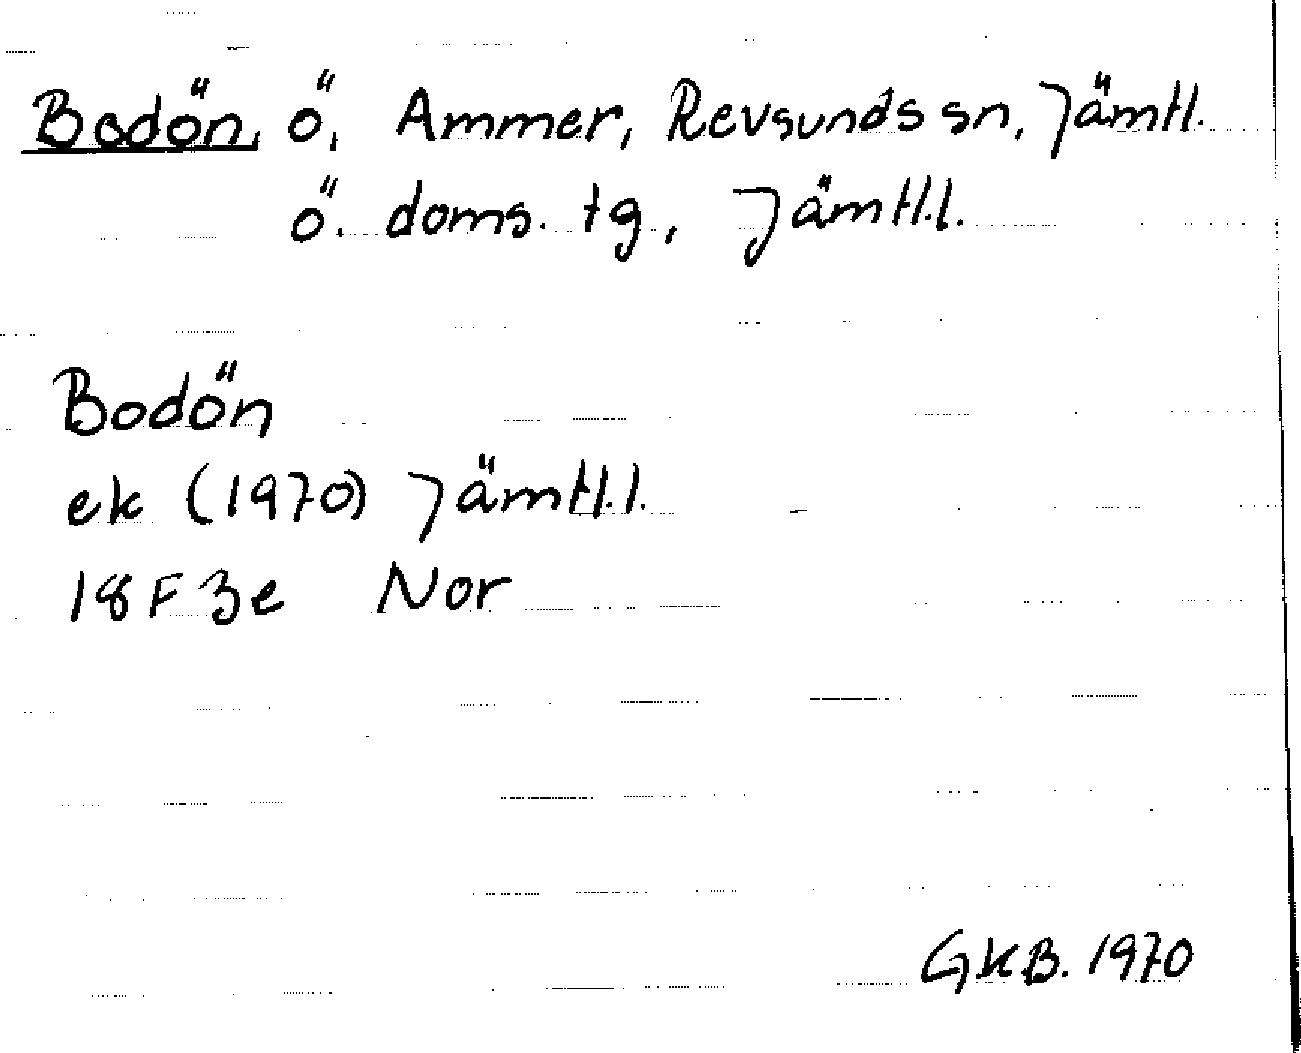 Bodön, ö, Ammer, Revsunds sn, Jämtl.
ö. doms. tg., Jämtl.l.
Bodön
ek (1970) Jämtl.l.
18F3e Nor
GKB. 1970